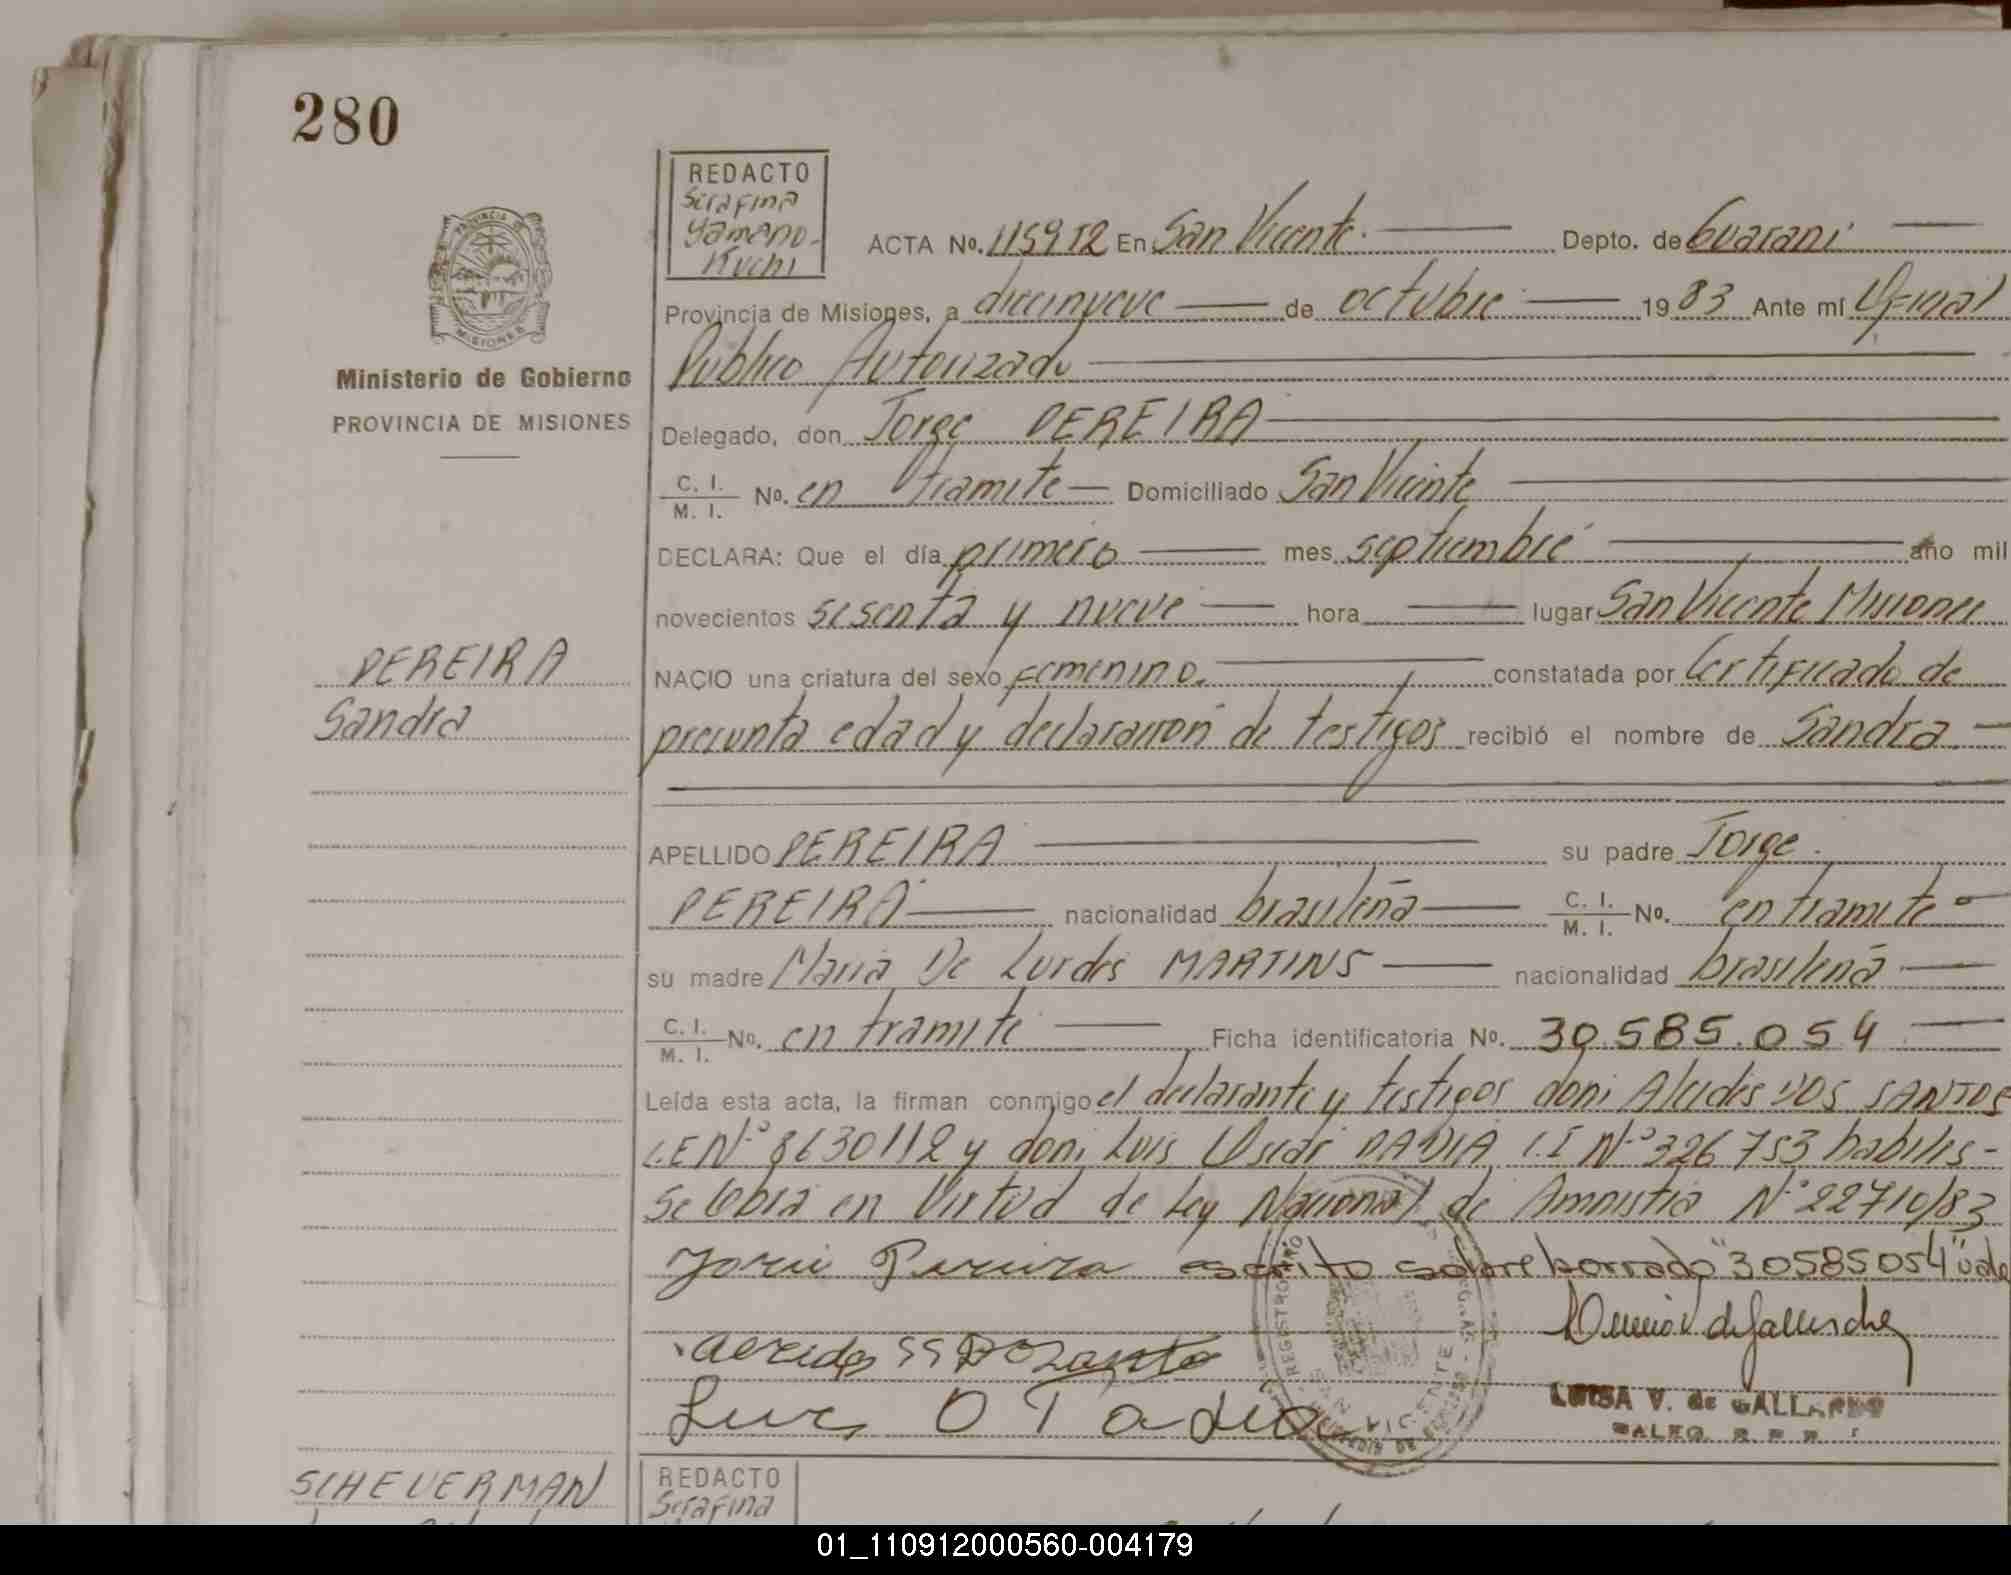 280
REDACTO
Serafina
Yamano-
Kuchi
ACTA No. 115972 En San Vicente. Depto. de Guaraní
Provincia de Misiones, a diecinueve de octubre 1983 Ante mí Oficial
Publico Autorizado
Ministerio de Gobierno
PROVINCIA DE MISIONES
Delegado, don Jorge PEREIRA
C. I. / M. I. No. en tramite Domiciliado San Vicente
DECLARA: Que el día primero mes septiembre año mil
novecientos sesenta y nueve hora lugar San Vicente Misiones
PEREIRA
Sandra
NACIO una criatura del sexo femenino. constatada por Certificado de
presunta edad y declaración de testigos recibió el nombre de Sandra
APELLIDO PEREIRA su padre Jorge
PEREIRA nacionalidad brasileña C. I. / M. I. No. en tramite
su madre Maria De Lurdes MARTINS nacionalidad brasileña
C. I. / M. I. No. en tramite Ficha identificatoria No. 30.585.054
Leída esta acta, la firman conmigo el declarante y testigos don: Alcides DOS SANTOS
C.E Nº 8630112 y don: Luis Oscar C.I Nº 326753 habiles-
Se labra en Virtud de Ley Nacional de Amnistia Nº 22710/83
Jorge Pereira escrito sobre borrado "30585054" vale
LUISA V. de GALLARDO
SCHEUERMAN
REDACTO
Serafina
01_110912000560-004179